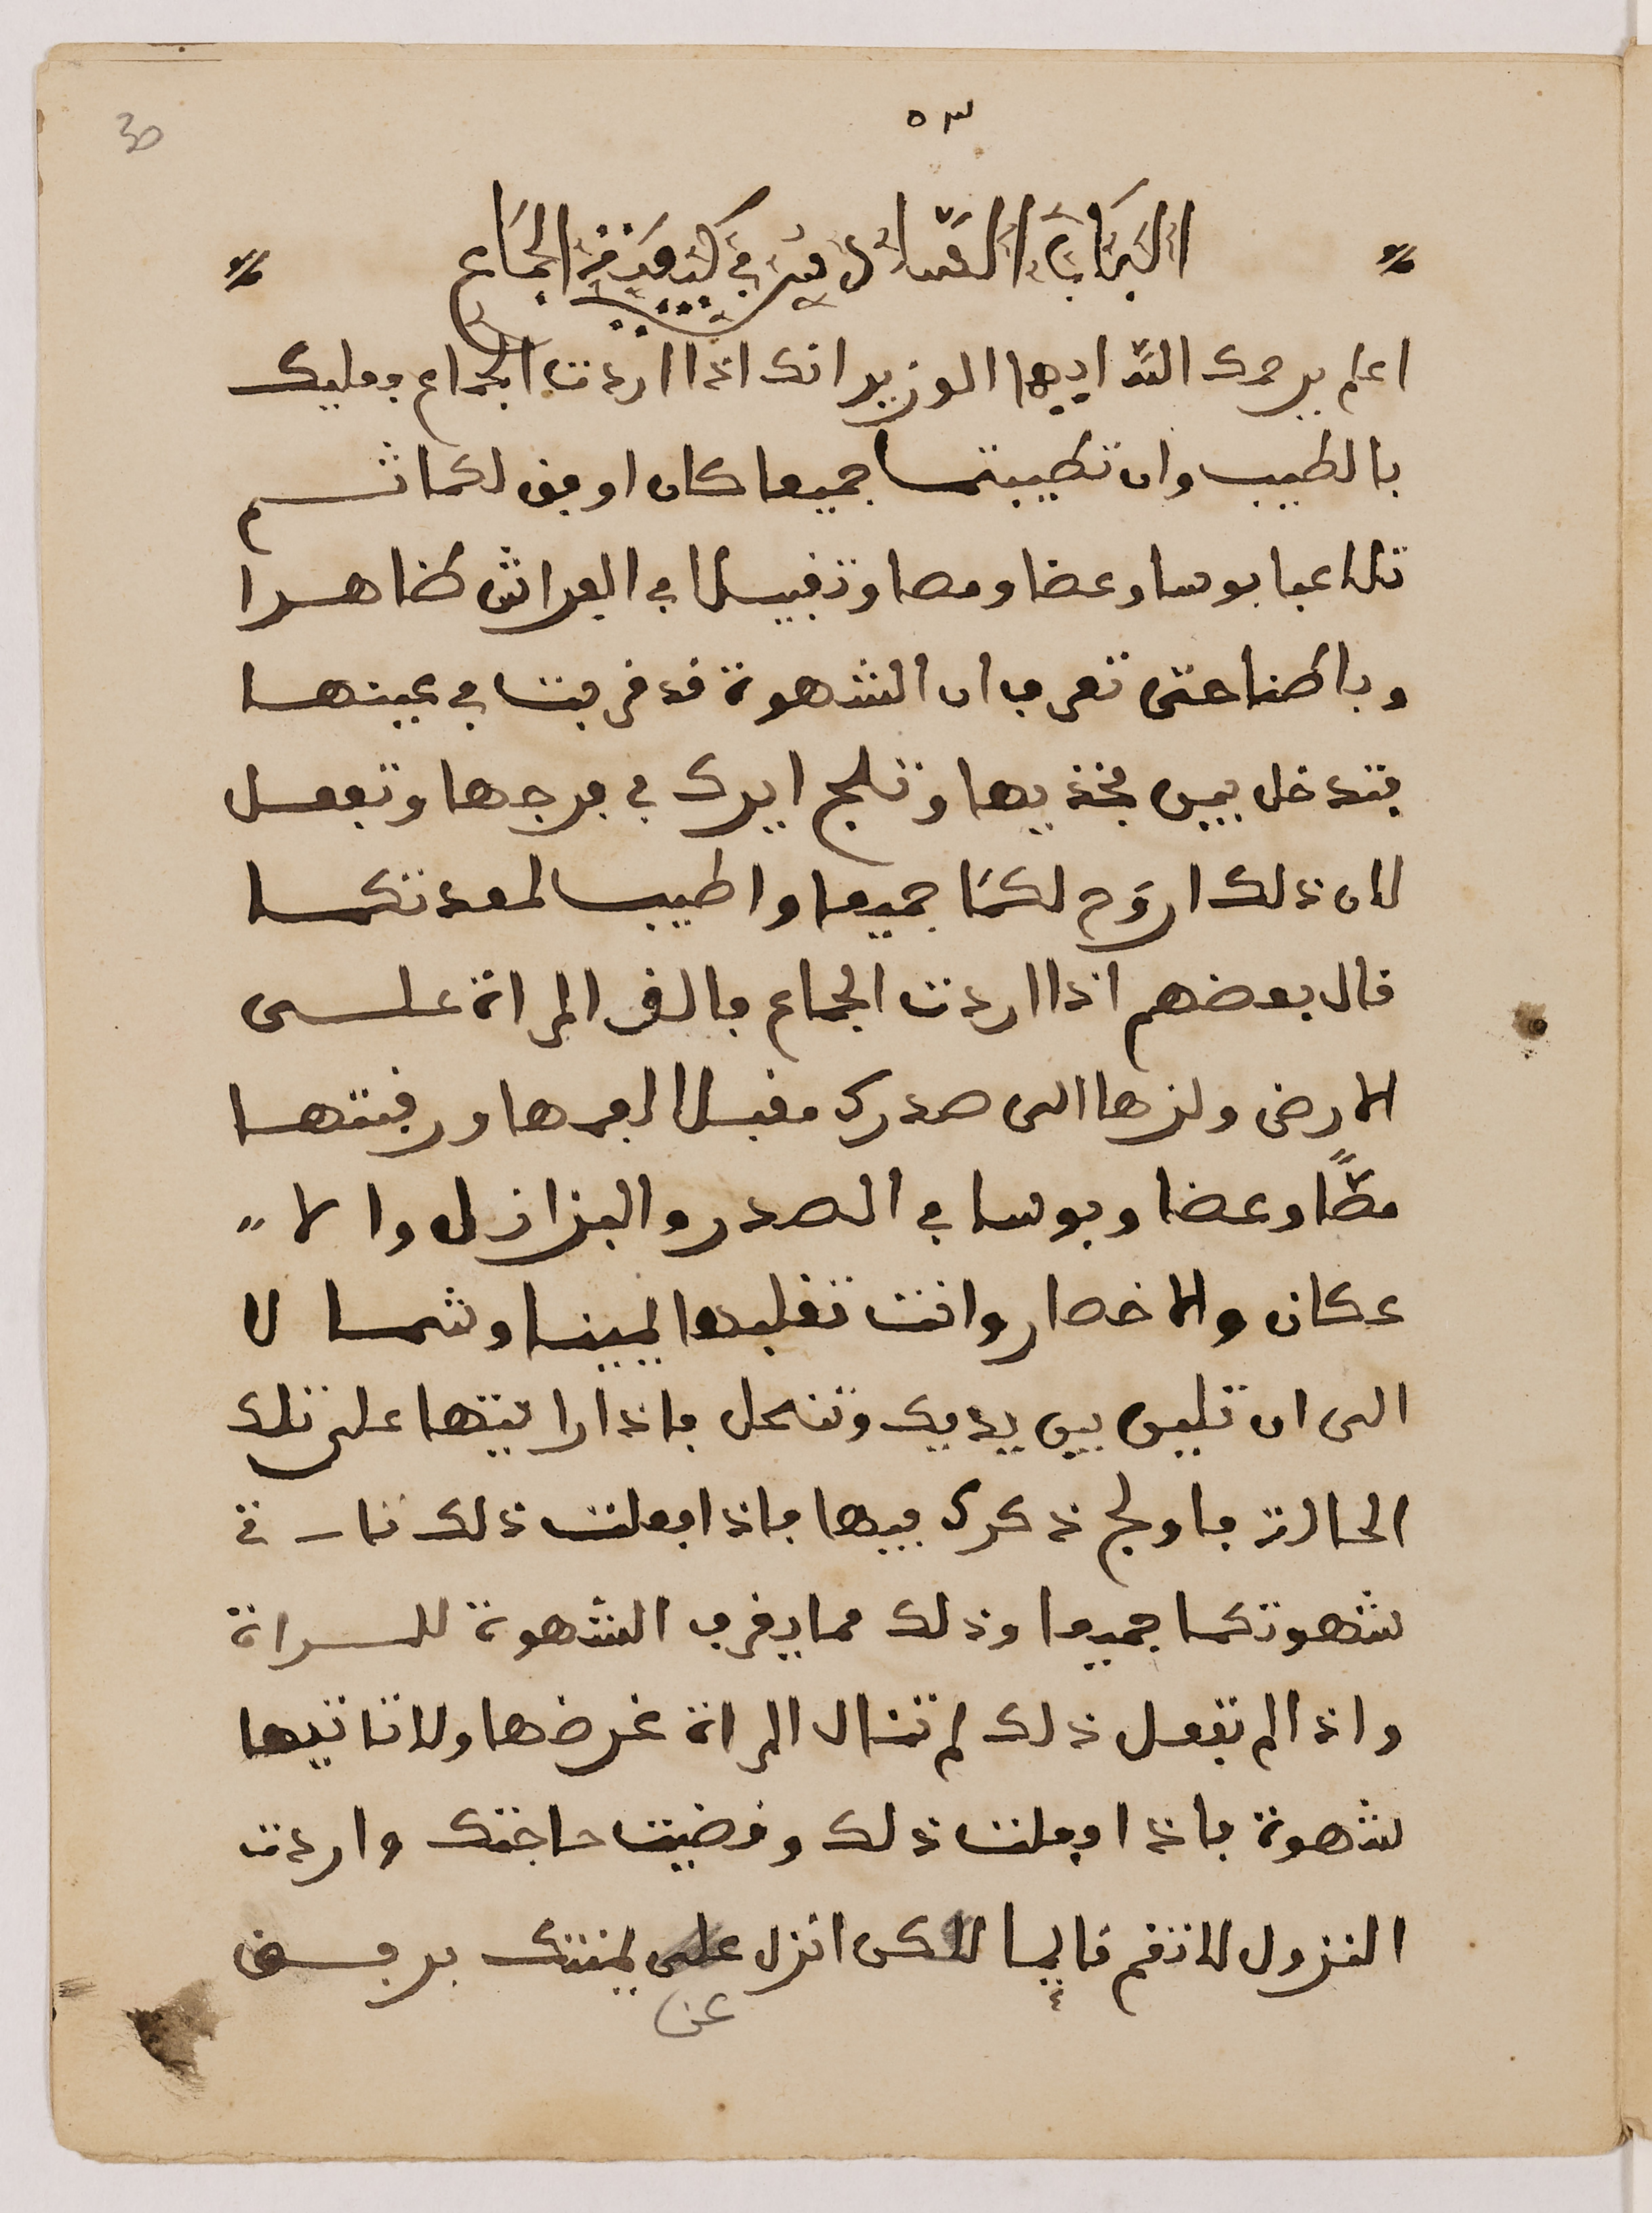 ٥٣
30
الباب السادس في كيفية الجماع
اعلم يرحمك الله ايها الوزير انك اذا اردت الجماع فعليك
بالطيب وان تطيبتما جميعا كان اوفق لكما ثم
تلاعبا بوسا وعضا ومصا وتقبيلا في الفراش ظاهرا
وباطنا حتى تعرف ان الشهوة قد قربت في عينها
فتدخل بين فخذيها وتلج ايرك في فرجها وتفعل
لان ذلك اروَح لكمَا جميعا واطيب لمعدتكما
قال بعضهم اذا اردت الجماع فالق المراة على
الارض ولزها الى صدرك مقبلا لفمها ورقبتها
مصًّا وعضا وبوسا في الصدر والبزازل والا
عكان والاخصار وانت تقلبها يمينا وشمالا
الى ان تلين بين يديك وتنحل فاذا رايتها على تلك
الحالة فاولج ذكرك فيها فاذا فعلت ذلك تارة
شهوتكما جميعا وذلك مما يقرب الشهوة للمراة
واذا لم تفعل ذلك لم تنال المراة غرضها ولا تاتيها
شهوة فاذا فعلت ذلك وقضيت حاجتك واردت
النزول لا تقم قايما لاكن انزل على يمينك برفق
عن